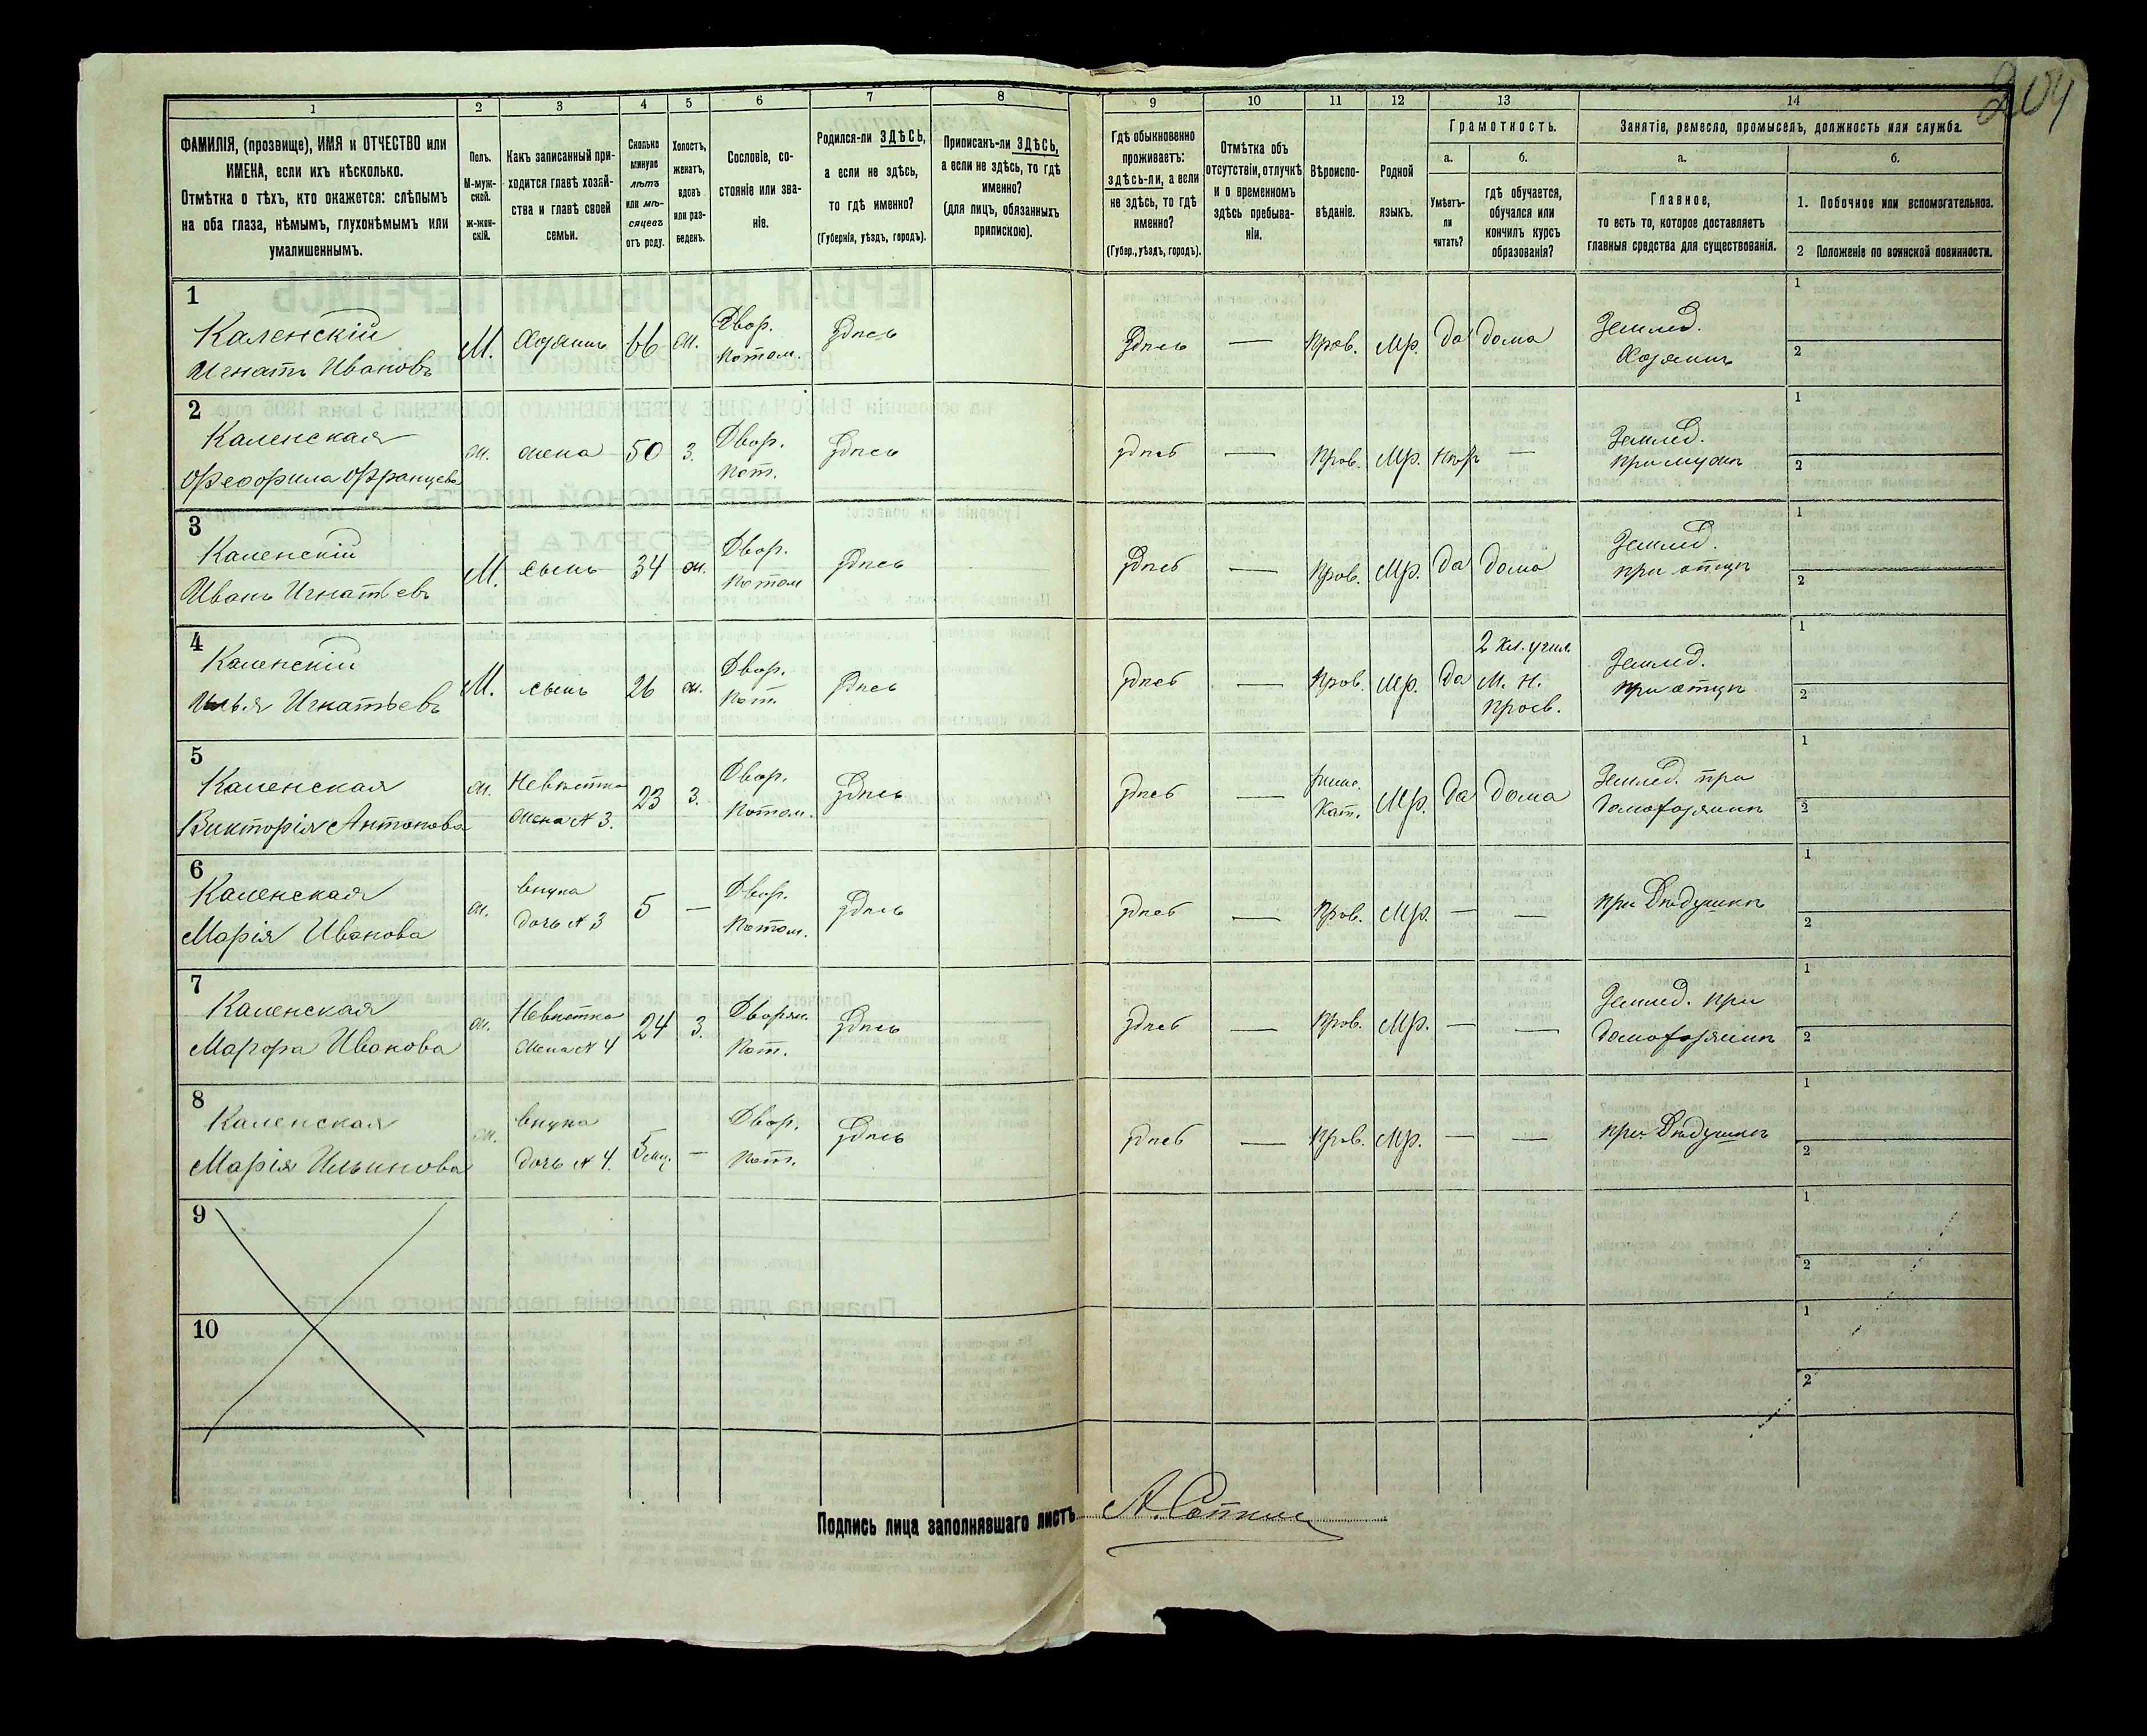 204
1 2 3 4 5 6 7 8 9 10 11 12 13 14
ФАМИЛІЯ, (прозвище), ИМЯ и ОТЧЕСТВО или
ИМЕНА, если ихъ нѣсколько.
Отмѣтка о тѣхъ, кто окажется: слѣпымъ
на оба глаза, нѣмымъ, глухонѣмымъ или
умалишеннымъ.
Полъ.
М-муж-
ской.
ж-жен-
скій.
Какъ записанный при-
ходится главѣ хозяй-
ства и главѣ своей
семьи.
Сколько
минуло
лѣтъ
или мѣ-
сяцевъ
отъ роду.
Холостъ,
женатъ,
вдовъ
или раз-
веденъ.
Сословіе, со-
стояніе или зва-
ніе.
Родился-ли ЗДѢСЬ,
а если не здѣсь,
то гдѣ именно?
(Губернія, уѣздъ, городъ).
Приписанъ-ли ЗДѢСЬ,
а если не здѣсь, то гдѣ
именно?
(для лицъ, обязанныхъ
припискою).
Гдѣ обыкновенно
проживаетъ:
здѣсь-ли, а если
не здѣсь, то гдѣ
именно?
(Губер., уѣздъ, городъ).
Отмѣтка объ
отсутствіи, отлучкѣ
и о временномъ
здѣсь пребыва-
ніи.
Вѣроиспо-
вѣданіе.
Родной
языкъ.
Грамотность.
а.
Умѣетъ-
ли
читать?
б.
гдѣ обучается,
обучался или
кончилъ курсъ
образованія?
Занятіе, ремесло, промыселъ, должность или служба.
а.
Главное,
то есть то, которое доставляетъ
главныя средства для существованія.
б.
1. Побочное или вспомогательное.
2 Положеніе по воинской повинности.
1
Каленскій
Игнатъ Ивановъ
М. Хозяинъ 66 ж. Двор.
Потом. Здѣсь Здѣсь — Прав. Мр. да дома Землед.
Хозяинъ
1
2
2
Каленская
Феофила Францева
ж. жена 50 З. Двор.
Пот. Здѣсь здѣсь — Прав. Мр. нѣтъ — Землед.
при мужѣ
1
2
3
Каленскій
Иванъ Игнатьевъ
М. сынъ 34 ж. Двор.
Потом Здѣсь Здѣсь — Прав. Мр. да дома Землед.
при отцѣ
1
2
4
Каленскій
Илья Игнатьевъ
М. сынъ 26 ж. Двор.
Пот. Здѣсь здѣсь — Прав. Мр. да 2 кл. учил.
М. Н.
Просв. Землед.
при отцѣ
1
2
5
Каленская
Викторія Антонова
ж. Невѣстка
жена N 3. 23 З. Двор.
Потом. Здѣсь здѣсь — римс.
Кат. Мр. да дома Землед. при
домохозяинѣ
1
2
6
Каленская
Марія Иванова
ж. внука
дочь N 3 5 — Двор.
Потом. Здѣсь здѣсь — Прав. Мр. — — при Дѣдушкѣ
1
2
7
Каленская
Иванова
ж. Невѣстка
жена N 4 24 З. Дворян.
Пот. Здѣсь здѣсь — Прав. Мр. — — Землед. при
домохозяинѣ
1
2
8
Каленская
Марія Ильинова
ж. внука
дочь N 4. 5 мц. — Двор.
Пот. Здѣсь здѣсь — Прав. Мр. — — при Дѣдушкѣ
1
2
9
1
2
10
1
2
Подпись лица заполнявшаго листъ